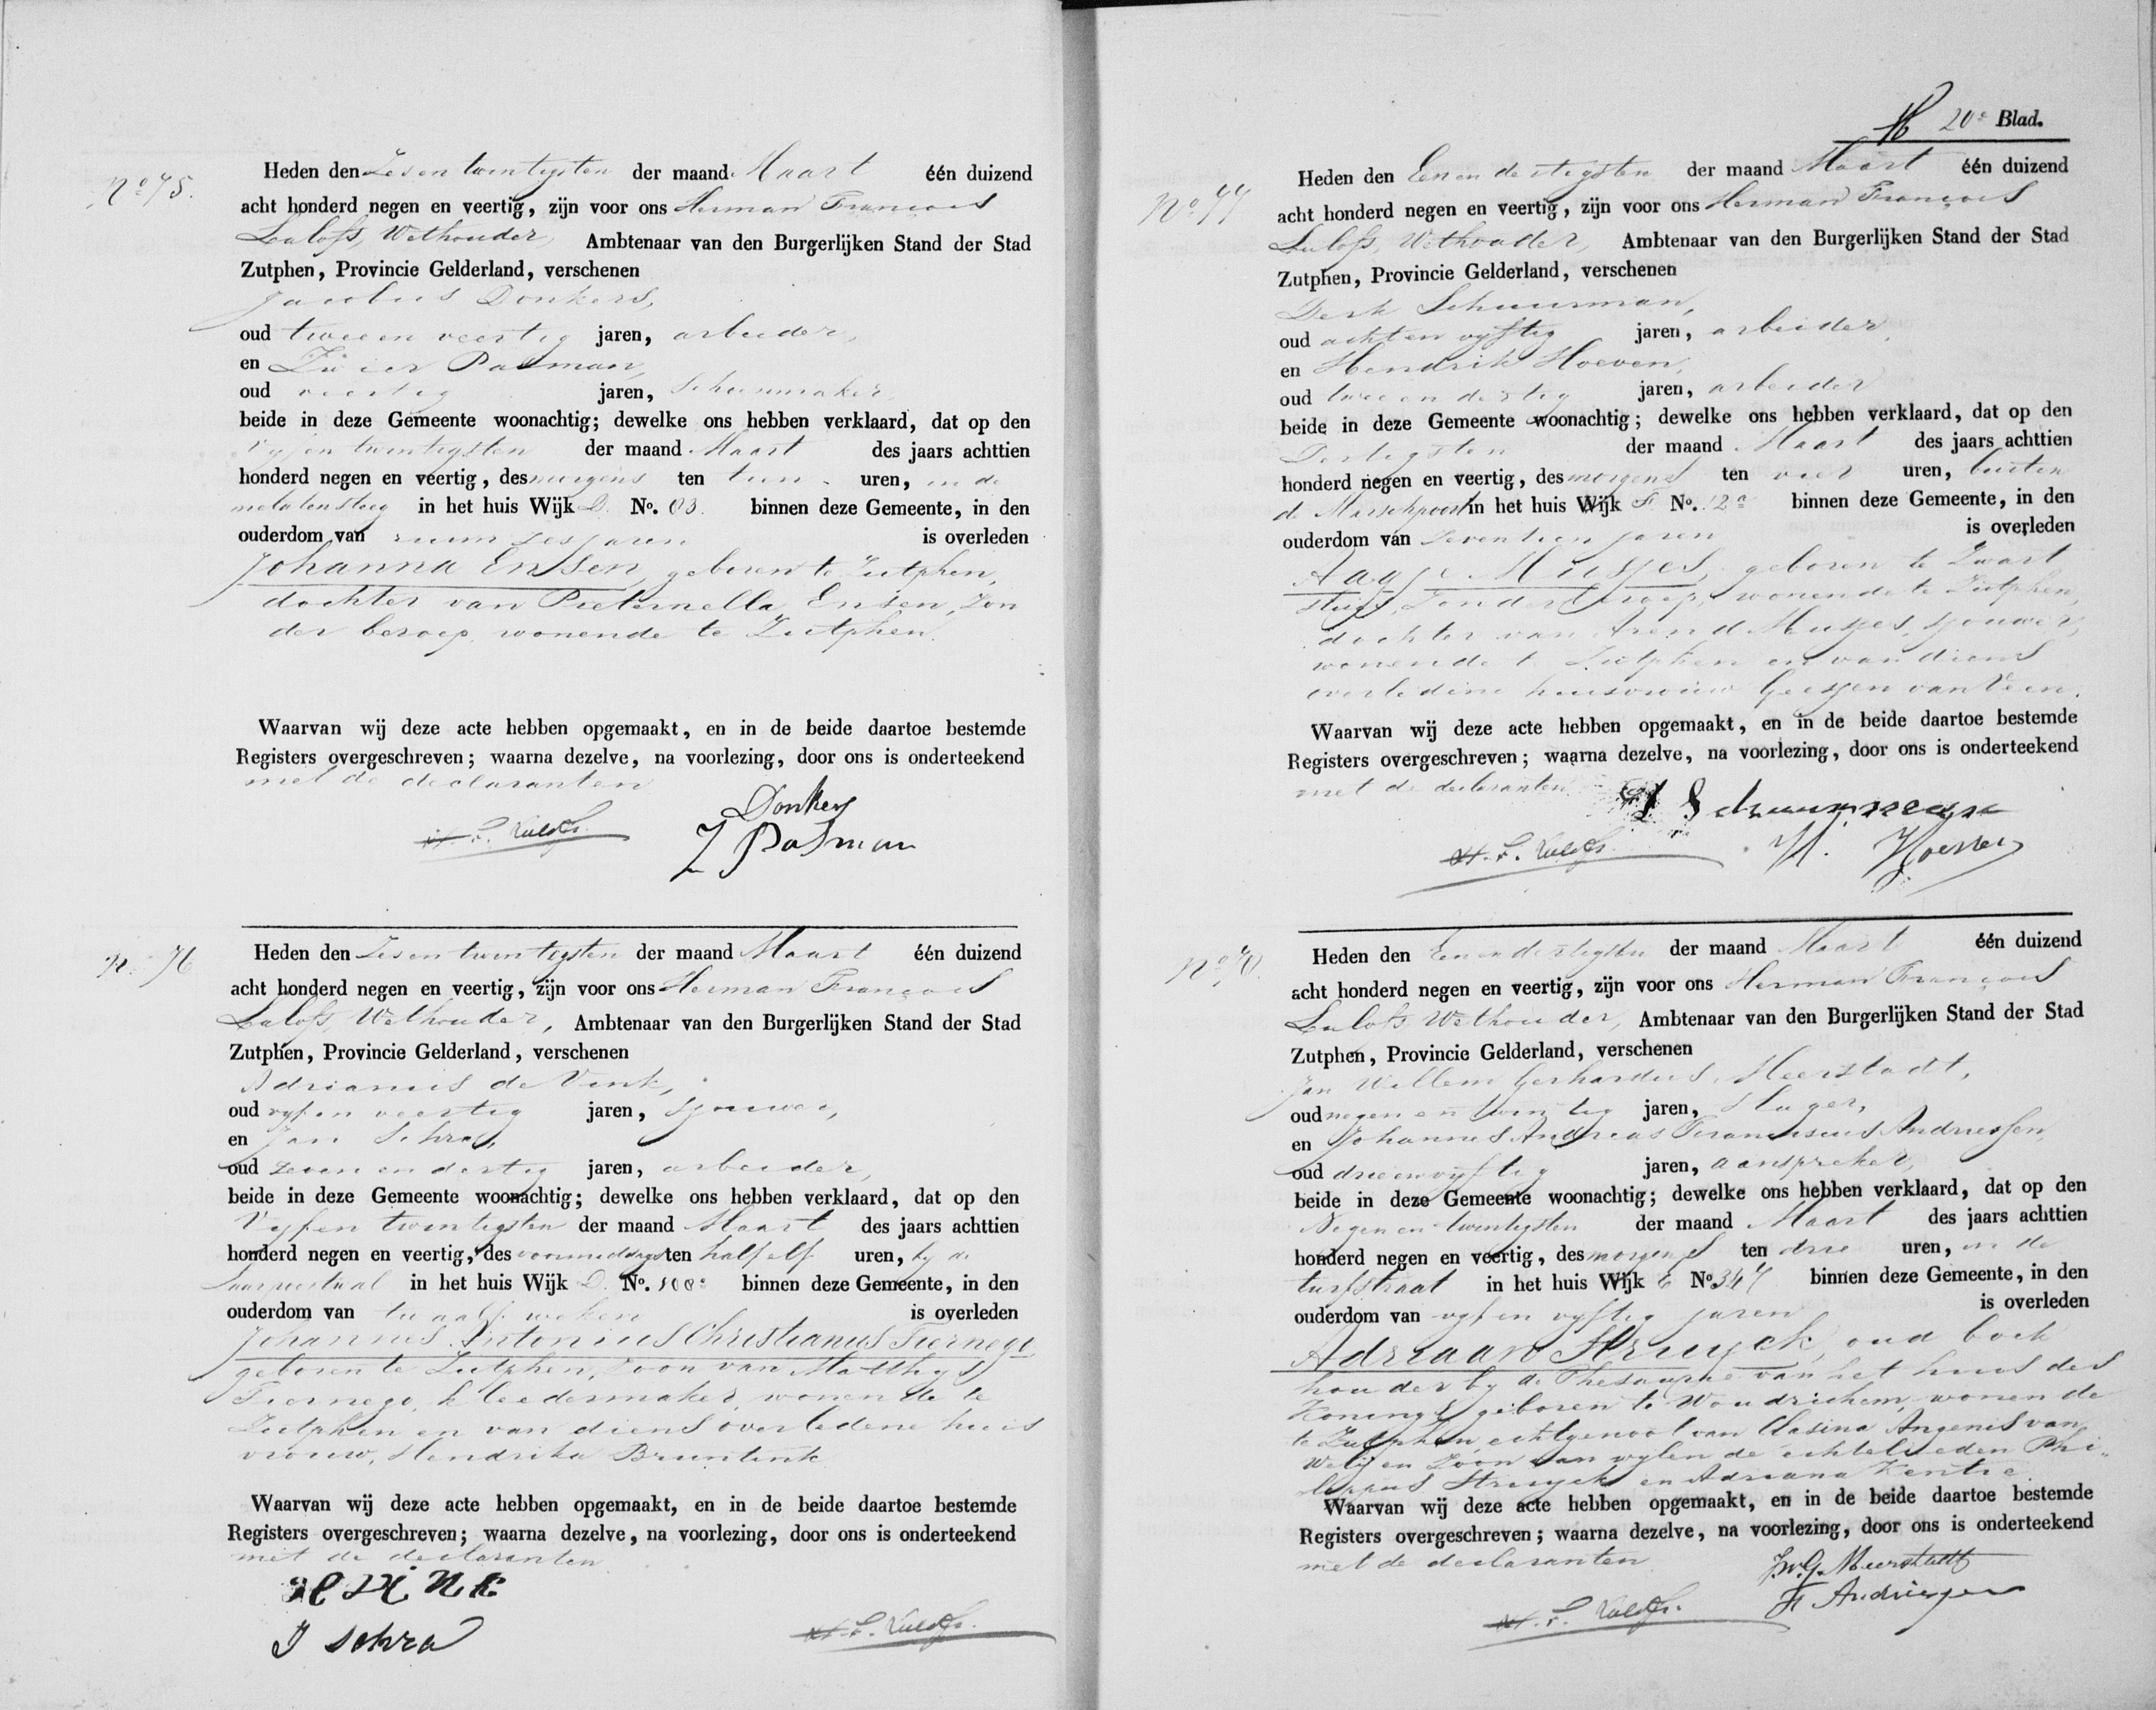 No 75.
Heden den Zesen twintigsten der maand Maart één duizend
acht honderd negen en veertig, zijn voor ons Herman François
Lulofs, Wethouder, Ambtenaar van den Burgerlijken Stand der Stad
Zutphen, Provincie Gelderland, verschenen
Jacobus Donkers,
oud twee en veertig jaren, arbeider,
en Zwier Pasman,
oud veertig jaren, Schoenmaker,
beide in deze Gemeente woonachtig; dewelke ons hebben verklaard, dat op den
Vyfen twintigsten der maand Maart des jaars achttien
honderd negen en veertig, des morgens ten tien uren, in de
in het huis Wijk D. No. 83. binnen deze Gemeente, in den
ouderdom van ruim zes jaren is overleden
Johanna Ensen, geboren te Zutphen,
dochter van Pieternella Ensen, zon
der beroep, wonende te Zutphen.
Waarvan wij deze acte hebben opgemaakt, en in de beide daartoe bestemde
Registers overgeschreven; waarna dezelve, na voorlezing, door ons is onderteekend
met de declaranten
Donkers
H. F. Lulofs.
Z Pasman
No 76
Heden den Zesen twintigsten der maand Maart één duizend
acht honderd negen en veertig, zijn voor ons Herman François
Lulofs, Wethouder, Ambtenaar van den Burgerlijken Stand der Stad
Zutphen, Provincie Gelderland, verschenen
Adrianus de Vink,
oud vyf en veertig jaren, sjouwer,
en Jan Schra,
oud zeven en dertig jaren, arbeider,
beide in deze Gemeente woonachtig; dewelke ons hebben verklaard, dat op den
Vyfen twintigsten der maand Maart des jaars achttien
honderd negen en veertig, des voormiddags ten half elf uren, by de
in het huis Wijk D. No. 108 binnen deze Gemeente, in den
ouderdom van twaalf weken is overleden
Johannes Antonius Christianus Fiernego
geboren te Zutphen, Zoon van Matthys
Fiernego, kleedermaker, wonende te
Zutphen en van diens overledene huis
vrouw, Hendrika Bruntink
Waarvan wij deze acte hebben opgemaakt, en in de beide daartoe bestemde
Registers overgeschreven; waarna dezelve, na voorlezing, door ons is onderteekend
met de declaranten
J Schra
H. F. Lulofs.
20e Blad.
No 77
Heden den Eenen dertigsten der maand Maart één duizend
acht honderd negen en veertig, zijn voor ons Herman François
Lulofs, Wethouder, Ambtenaar van den Burgerlijken Stand der Stad
Zutphen, Provincie Gelderland, verschenen
Derk Schuurman,
oud acht en vyftig jaren, arbeider,
en Hendrik Hoeven,
oud twee en dertig jaren, arbeider
beide in deze Gemeente woonachtig; dewelke ons hebben verklaard, dat op den
Dertigsten der maand Maart des jaars achttien
honderd negen en veertig, des morgens ten vier uren, buiten
de Marschpoort in het huis Wijk F No. 12a binnen deze Gemeente, in den
ouderdom van zeventien jaren is overleden
Aagje Musjes, geboren te Zwart
sluis, Zonder beroep, wonende te Zutphen,
dochter van Arend Musjes, sjouwer,
wonende te Zutphen en van diens
overledene huisvrouw Geesjen van Veen.
Waarvan wij deze acte hebben opgemaakt, en in de beide daartoe bestemde
Registers overgeschreven; waarna dezelve, na voorlezing, door ons is onderteekend
met de declaranten
Schuurman
H. F. Lulofs.
H. Hoeven
No 78.
Heden den Eenen dertigsten der maand Maart één duizend
acht honderd negen en veertig, zijn voor ons Herman François
Lulofs Wethouder, Ambtenaar van den Burgerlijken Stand der Stad
Zutphen, Provincie Gelderland, verschenen
Jan Willem Gerhardus Meerstadt,
oud negen en twintig jaren, slager,
en Johannes Andreas Franciscus Andriessen
oud drie en vyftig jaren, aanspreker,
beide in deze Gemeente woonachtig; dewelke ons hebben verklaard, dat op den
Negen en twintigsten der maand Maart des jaars achttien
honderd negen en veertig, des morgens ten drie uren, in de
turfstraat in het huis Wijk No 347 binnen deze Gemeente, in den
ouderdom van vyf en vyftig jaren is overleden
Adriaan Struyck, oud boek
houder by de Thesaurie van het huis des
Konings, geboren te Woudrichem, wonende
te Zutphen, echtgenoot van Clasina Angenis van
Welij en Zoon van wylen de echtelieden Phi-
lippus Struyck en Adriana Kentie.
Waarvan wij deze acte hebben opgemaakt, en in de beide daartoe bestemde
Registers overgeschreven; waarna dezelve, na voorlezing, door ons is onderteekend
met de declaranten
J.W.G. Meerstadt
H. F. Lulofs.
F Andriessen